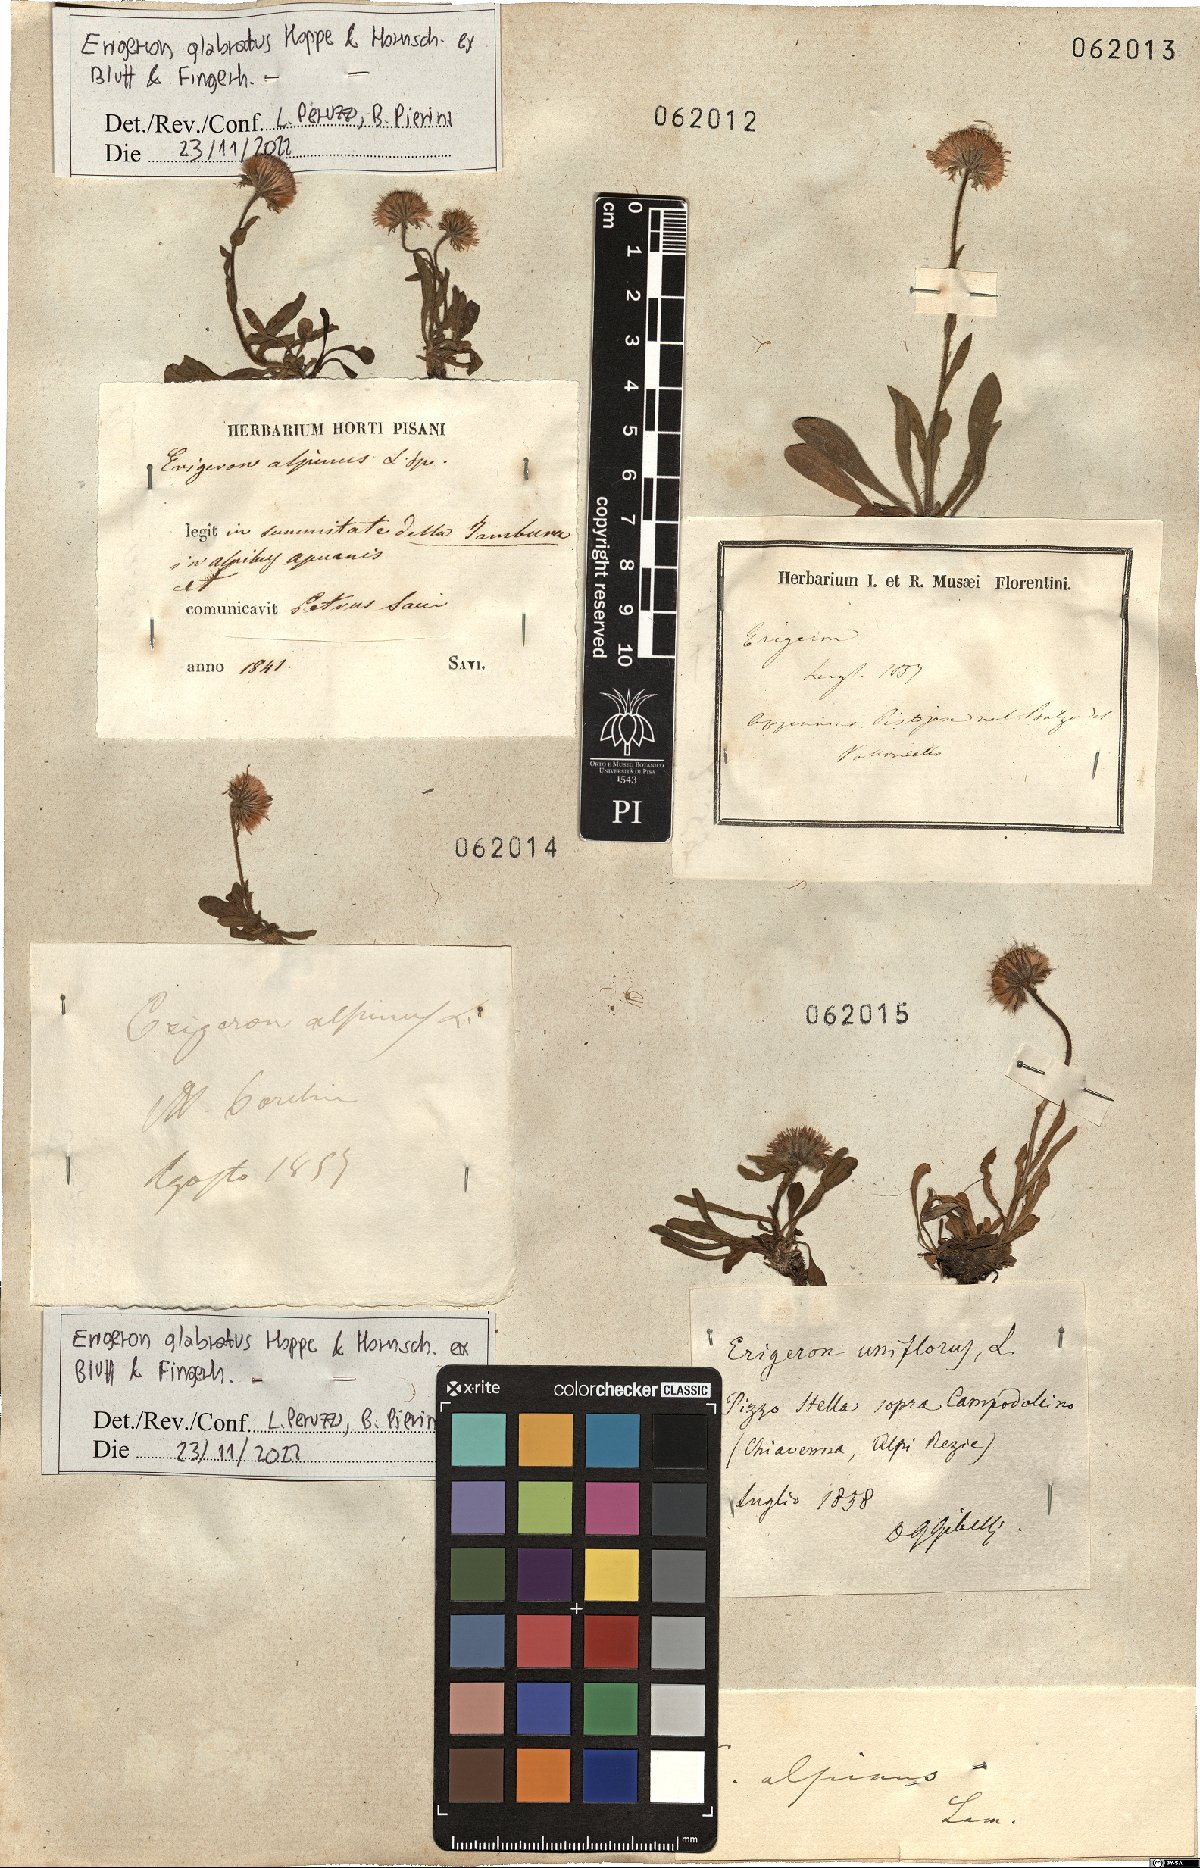 Erigeron glabratus Hoppe & Hornsch. ex
Bluff & Fingerh.
Det./Rev./Conf. L. Peruzzi, B. Pierini
Die 23/11/2022
062013
062012
cm
0
1
2
3
4
5
6
7
8
9
10
copyright reserved
ORTO E MUSEO BOTANICO
UNIVERSITÀ DI PISA
1543
PI
HERBARIUM HORTI PISANI
Erigeron alpinus L. Sp.
legit in summitate della Tambura
in alpibus apuanis
et
comunicavit Petrus Savi
anno 1841
SAVI.
Herbarium I. et R. Musæi Florentini.
Erigeron
Appennino Pistojese nel
062014
Erigeron alpinus L.
Agosto
062015
Erigeron glabratus Hoppe & Hornsch. ex
Bluff & Fingerh.
Det./Rev./Conf. L. Peruzzi, B. Pierin
Die 23/11/2022
Erigeron uniflorus, L.
Pizzo Stella sopra Campodolcino
(Chiavenna, Alpi Rezie)
Luglio 1858
Gibelli
x-rite
colorchecker CLASSIC
mm
. alpinus
Lam.